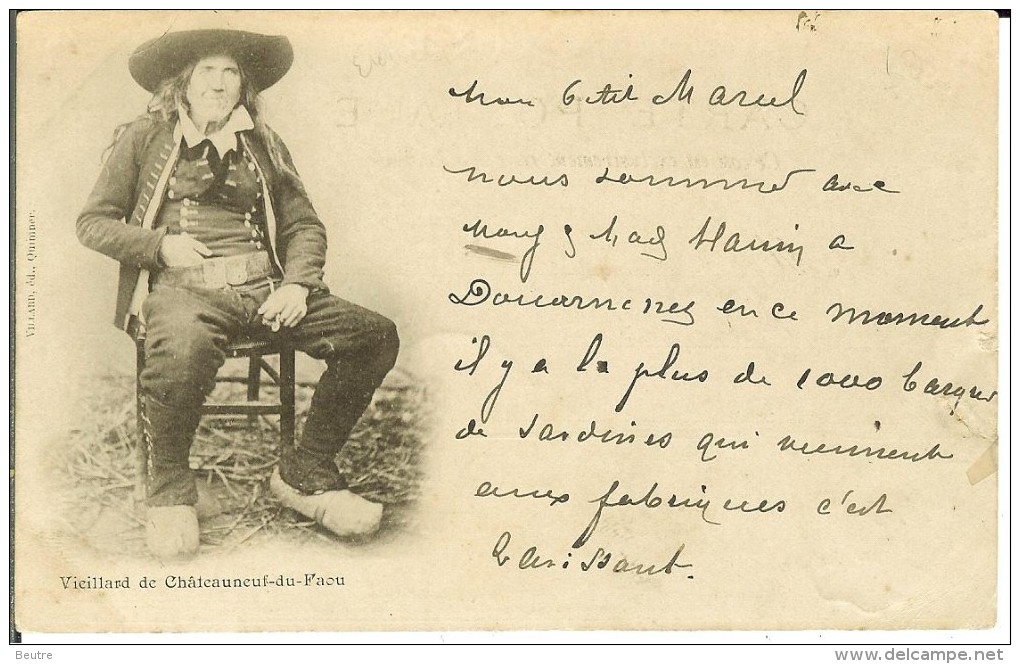 Mon Ptit Marcel
nous sommes avec
à
Douarnenez en ce moment
il y a là plus de 1000 barques
de sardines qui viennent
aux fabriques c'est
VILLARD, éd., Quimper.
Vieillard de Châteauneuf-du-Faou
Beutre
www.delcampe.net